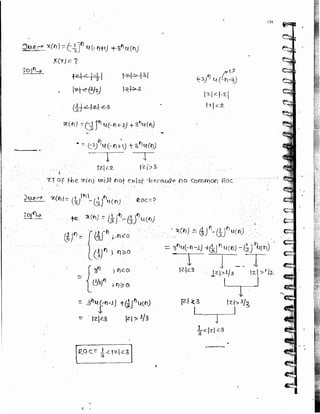 134
Ques→ x(n) = (-1/2)^n u(-n+1) + 3^n u(n)
X(z) = ?
Sol^n→
x(n) = (-1/2)^n u(-n+1) + 3^n u(n)
= (-2)^n u(-n+1) + 3^n u(n)
|z|<2 |z|>3
Z.T of the x(n) will not exist because no common Roc
|z|<|-2|
|z|<2
Ques→ x(n) = (1/3)^|n| - (1/2)^n u(n) ROC=?
Sol^n→ x(n) = (1/3)^|n| - (1/2)^n u(n)
(1/3)^|n| = { (1/3)^-n ; n<0
(1/3)^n ; n≥0
= { 3^n ; n<0
(1/3)^n ; n≥0
= 3^n u(-n-1) + (1/3)^n u(n)
= |z|<3 |z|>1/3
x(n) = (1/3)^|n| - (1/2)^n u(n)
= 3^n u(-n-1) + (1/3)^n u(n) - (1/2)^n u(n)
|z|<3 |z|>1/3 |z|>1/2
1/2<|z|<3
ROC = 1/2 <|z|<3